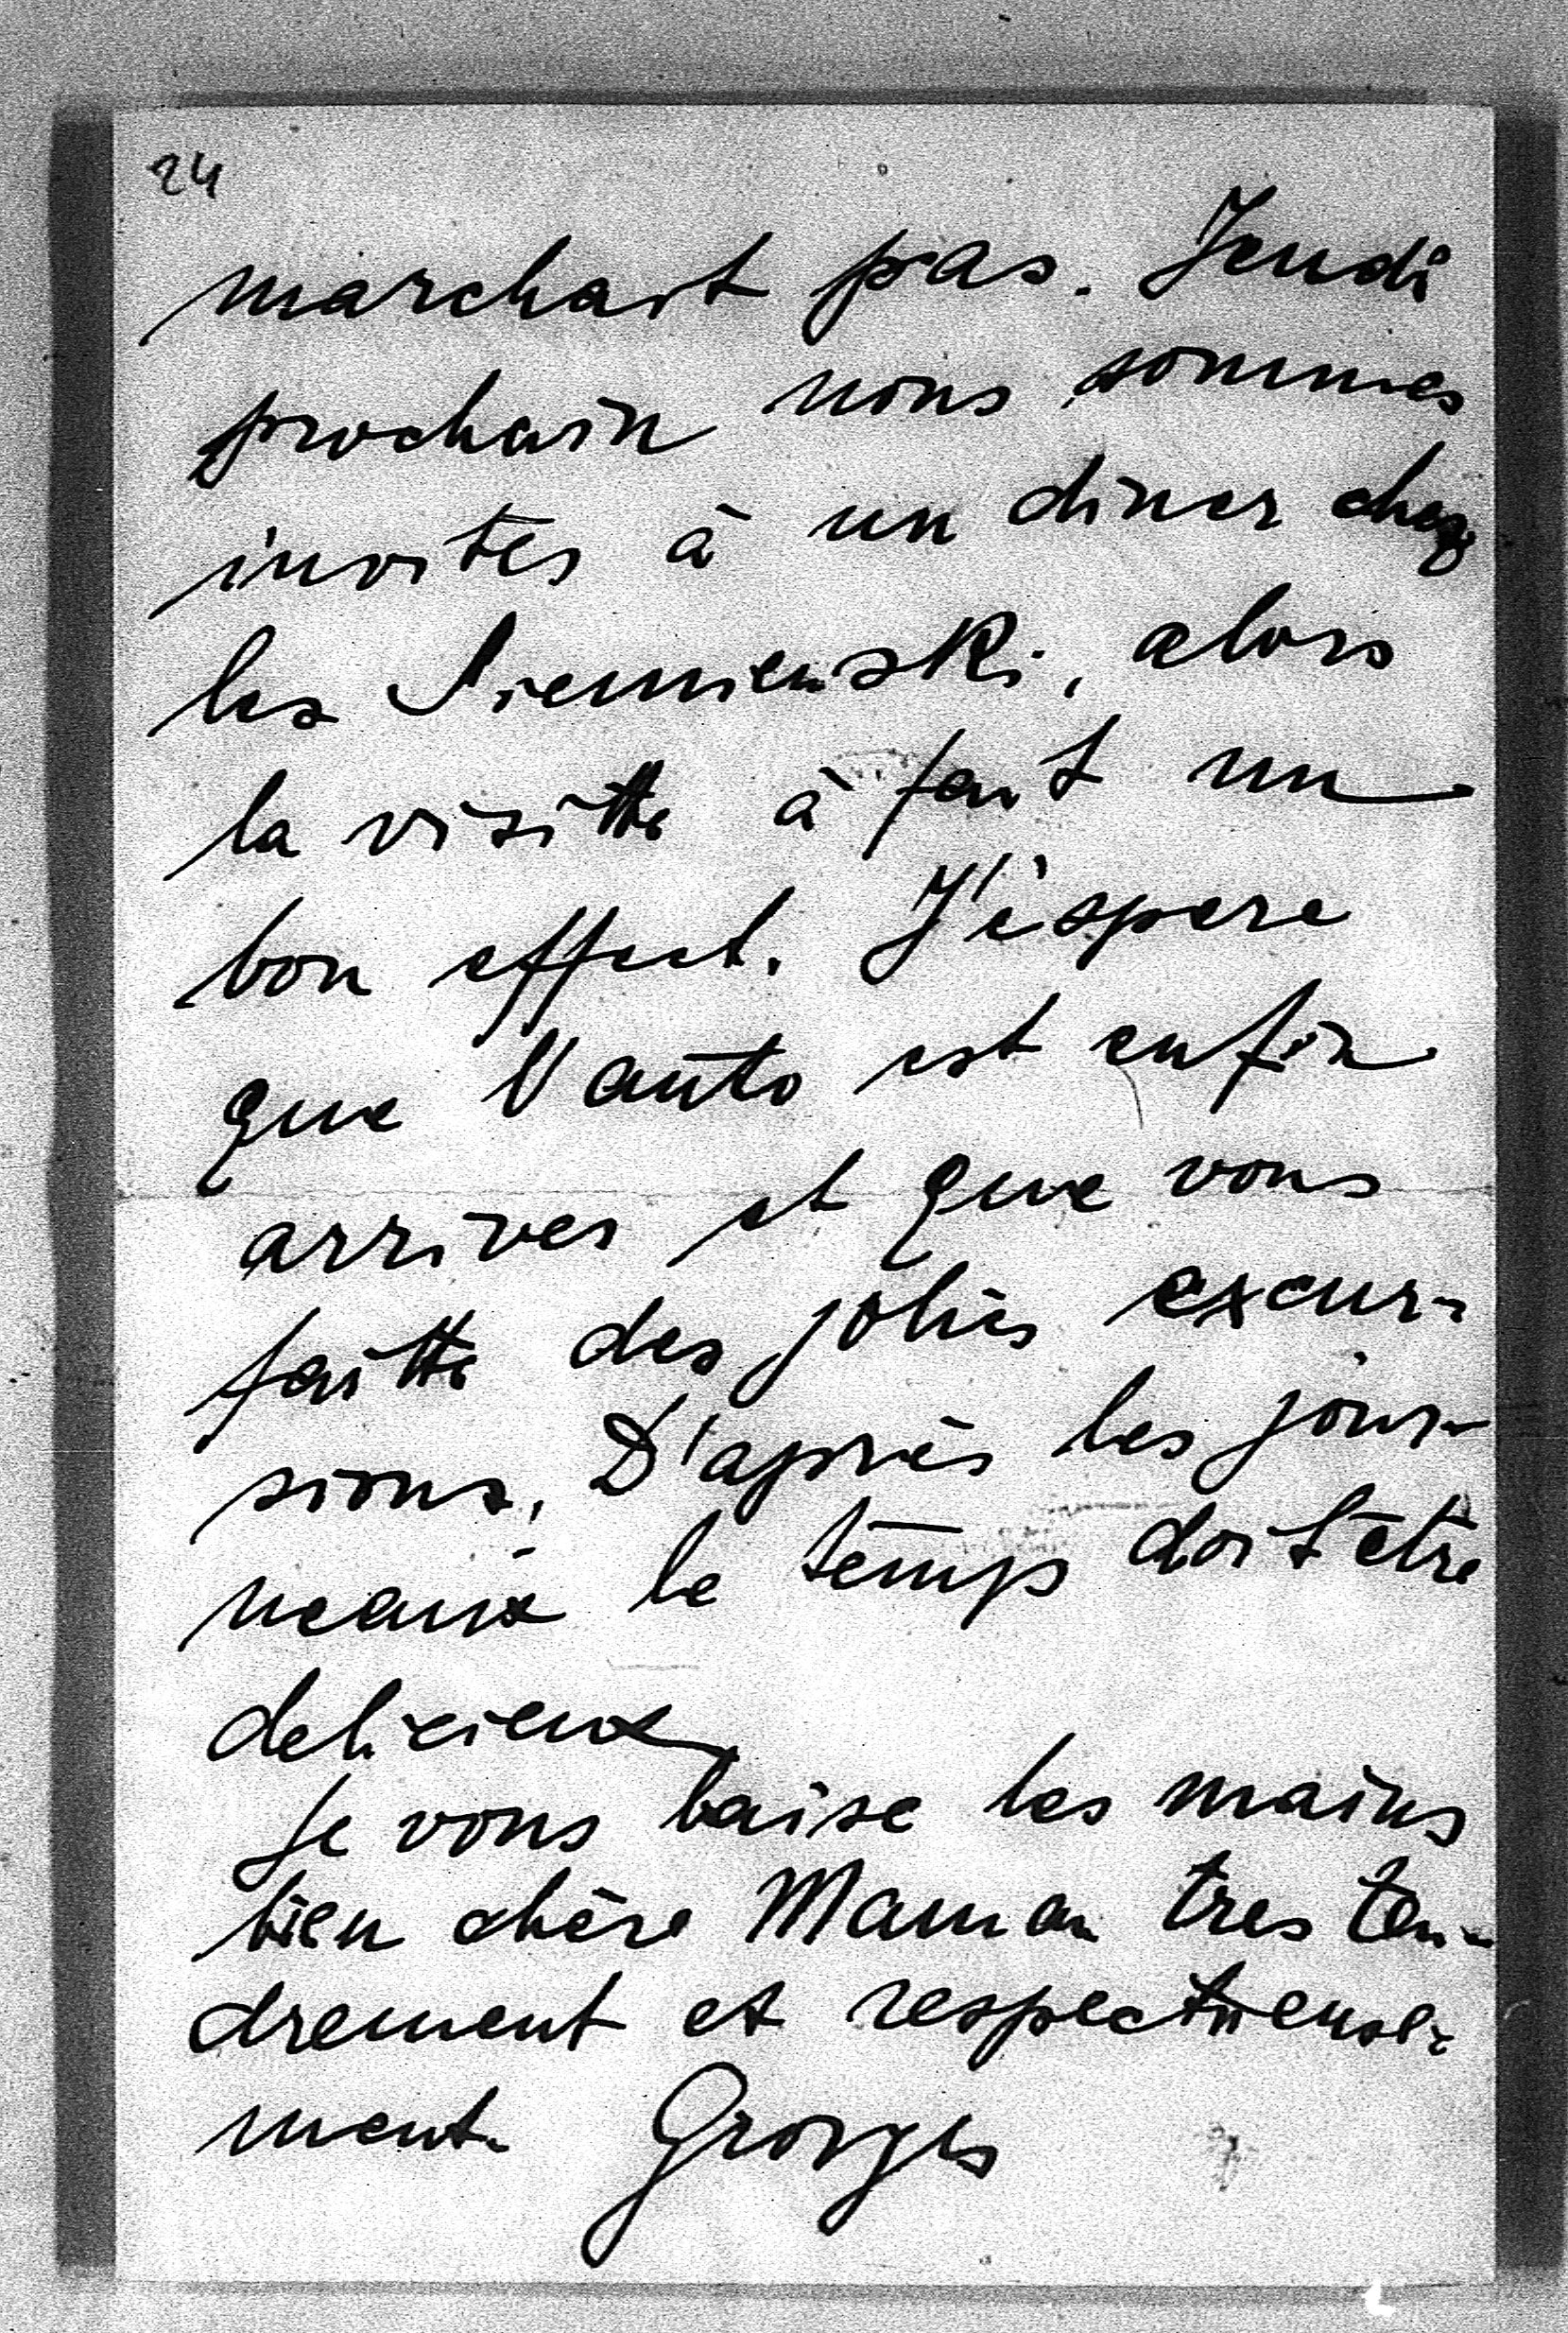 24
marchait pas. Jeudi
prochain nous sommes
invites à un diner chez
les Siemienski, alors
la visitte à fait un
bon effect. J'éspere
que l'auto est enfin
arrives et que vous
faitte des joliés excur-
sions. D'après les jour-
neaux le temps doit etre
delicieux
Je vous baise les mains
bien chère Maman tres ten-
drement et respectueuse-
ment. Georges